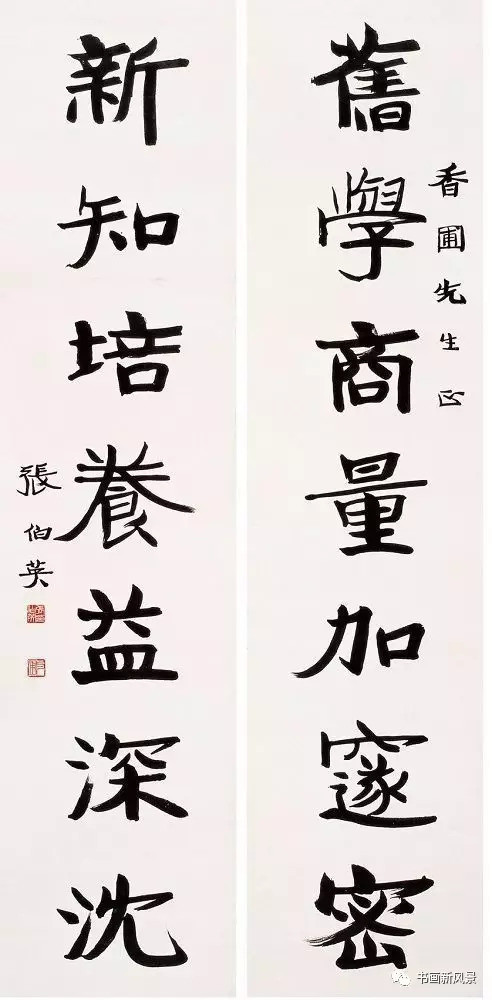 香圃先生正
舊學商量加邃密
新知培養益深沈
張伯英
书画新风景